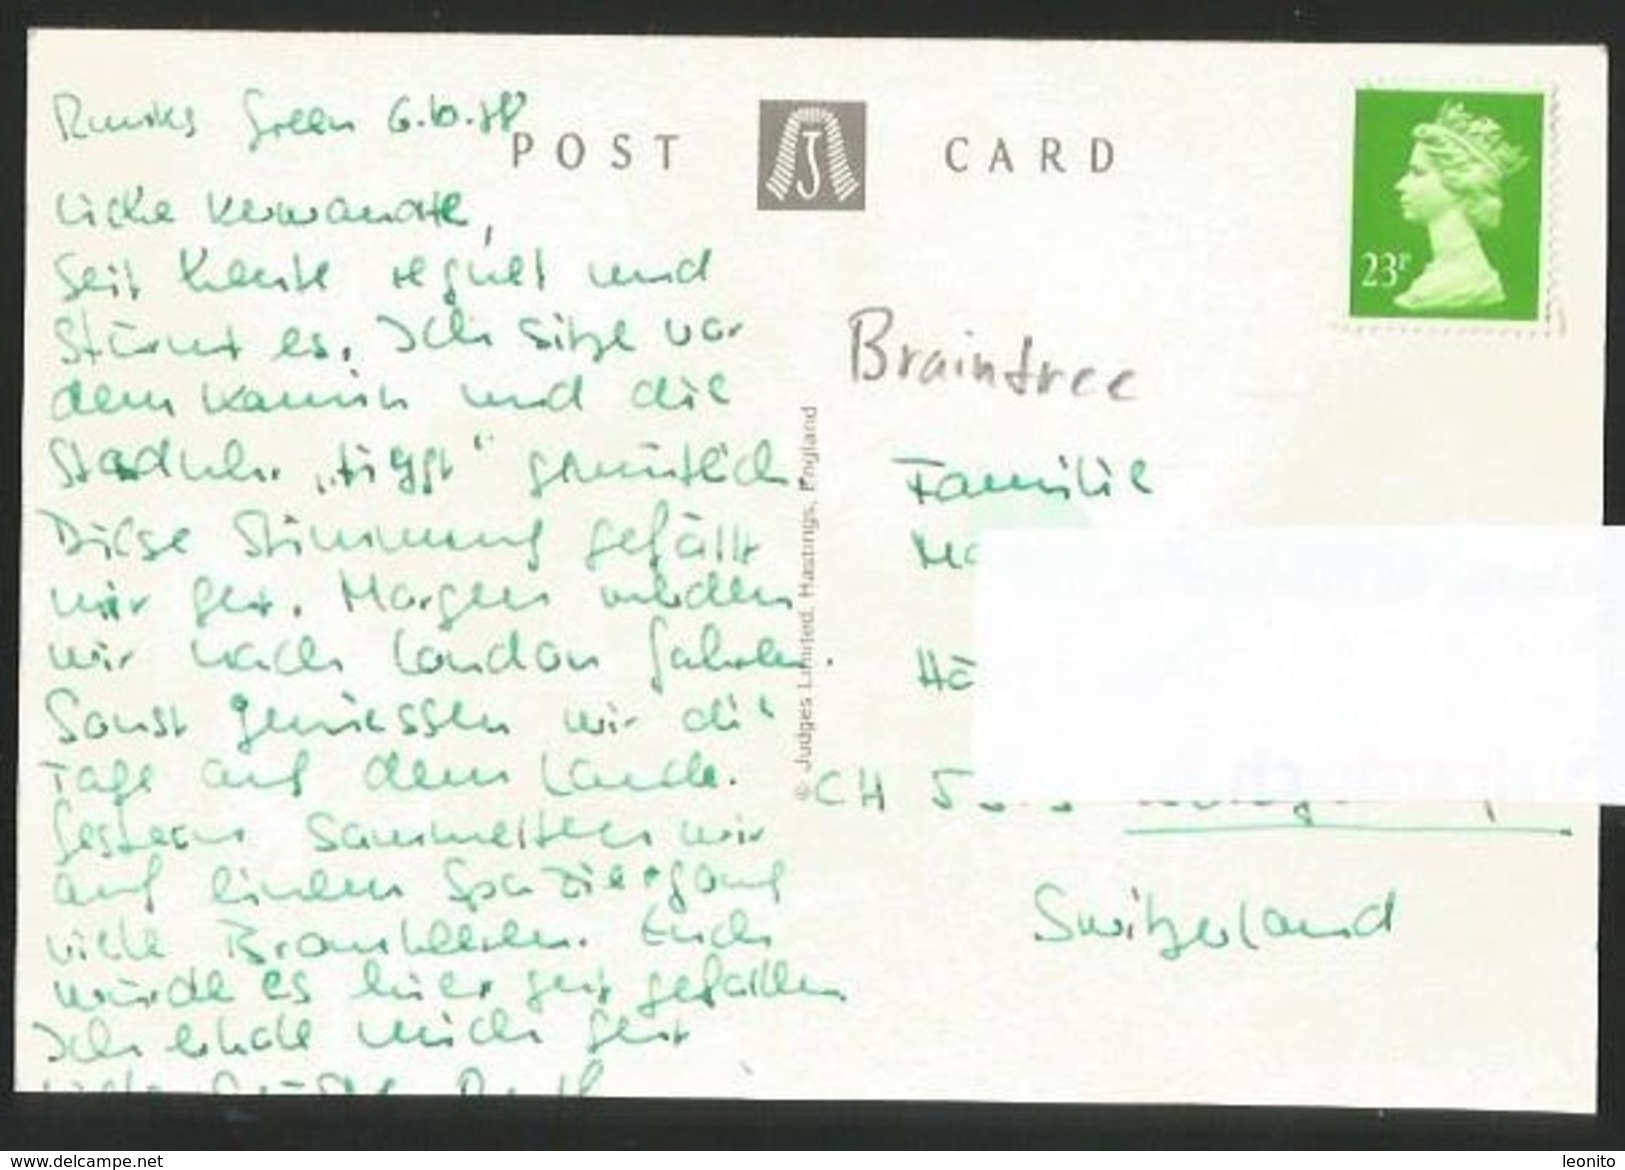 Rumks Green 6.10.88
POST CARD
23P
Liebe Verwandte,
Seit heute regnet und
stürmt es. Ich sitze vor
dem Kamin und die
Standuhr „tiggt" gemütlich.
Diese Stimmung gefällt
mir gut. Morgen werden
wir nach London fahren.
Sonst geniessen wir die
Tage auf dem Lande.
Gestern sammelten wir
auf einem Spaziergang
viele Brombeeren. Euch
würde es hier gut gefallen
Ich erhole mich gut
Liebe Grüsse
© Judges Limited. Hastings, England
Braintree
Familie
CH
Switzerland
www.delcampe.net
leonito